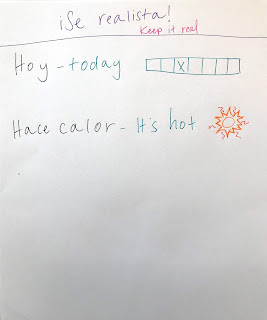 ¡Se realista!
Keep it real
Hoy - today
x
Hace calor - It's hot